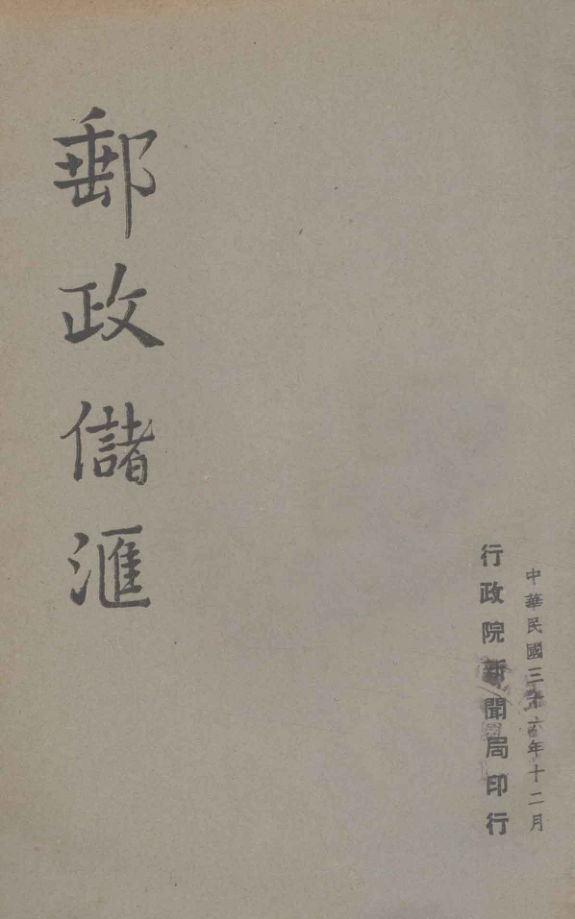 中華民國三十六年十二月
行政院新聞局印行
郵政儲滙